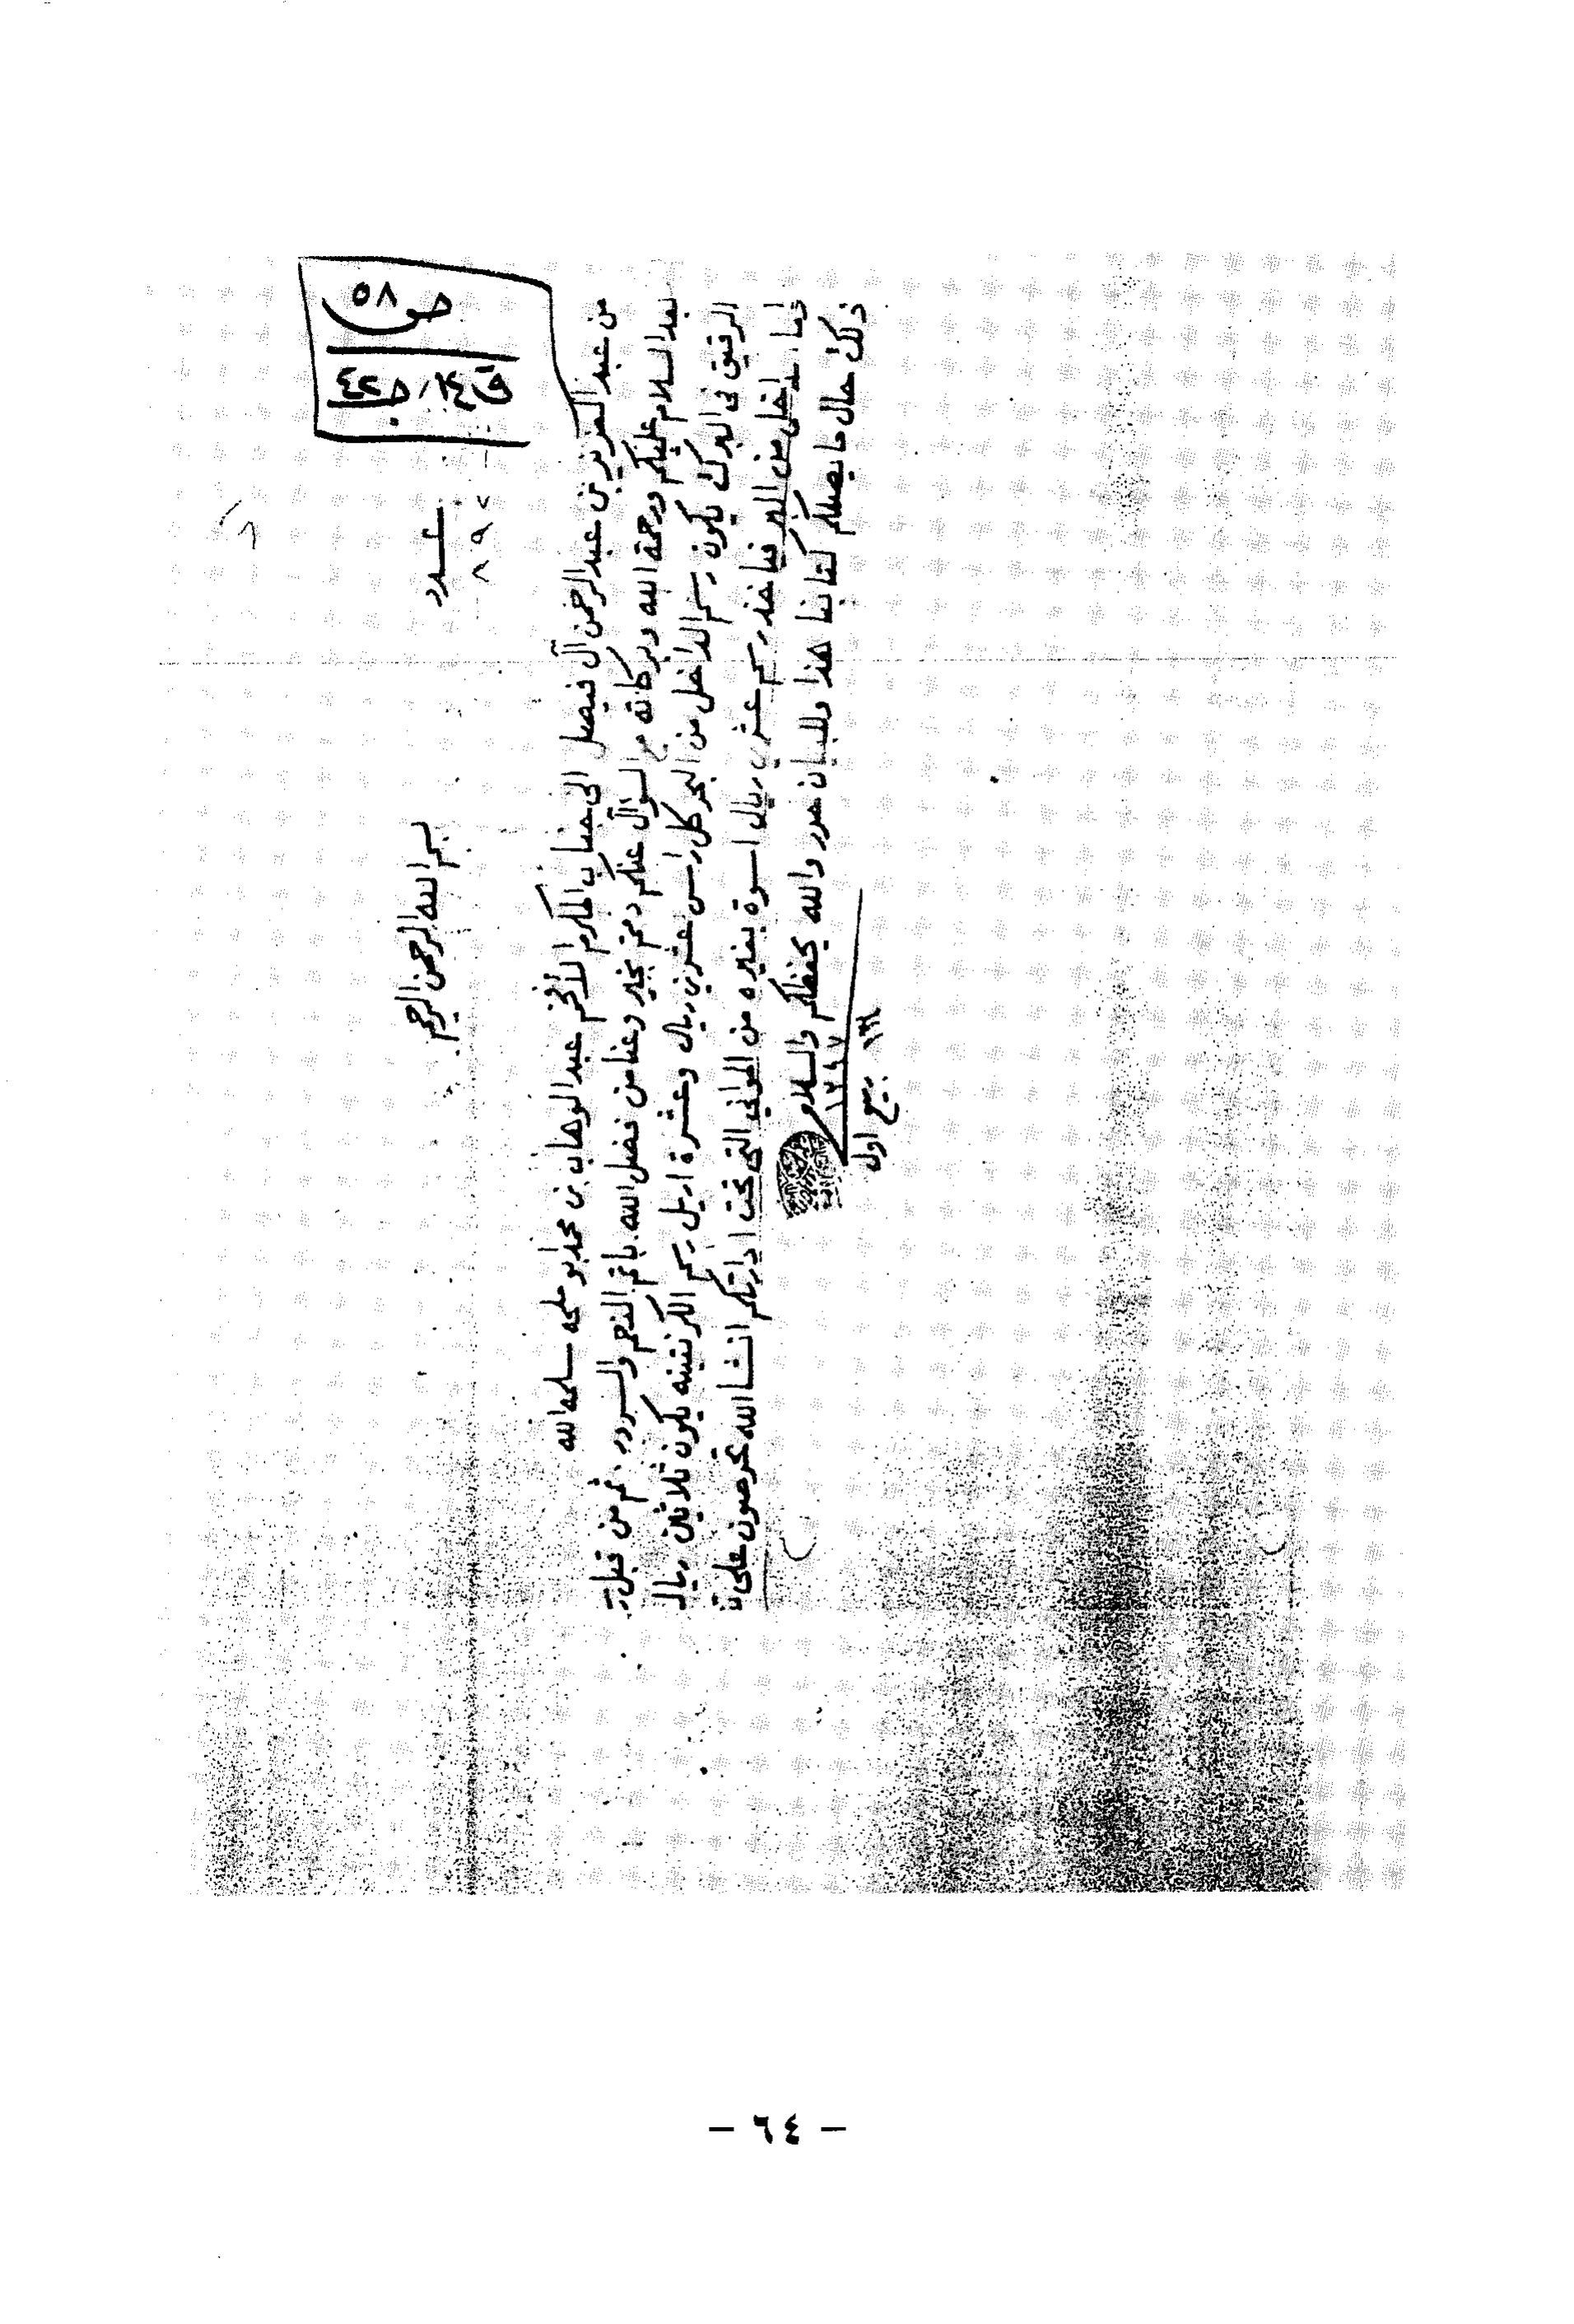 حق ٥٨
عدد
٨٩٧
بسم الله الرحمن الرحيم
من عبد العزيز بن عبد الرحمن آل فيصل الى جناب المكرم الأفخم عبد الوهاب بن محمد ابو ملحه سلمه الله
بعد السلام عليكم ورحمة الله وبركاته مع السؤال عنكم دمتم بخير وعنا من فضل الله باتم النعم والسرور. ثم من قبل
الرقيق فى البرك يكون رسم الداخل من البحر كل راس عشرين ريال وعشرة اريل رسم الكرنتينه يكون ثلاثين ريال
الداخل من البر فياخذ رسم عشرين ريال اسوة بغيره من المواني التي تحت ادارتكم انشاالله تحرصون على
ذلك حال ما يصلكم كتابنا هذا وللبيان حرر والله يحفظكم والسلام
ربيع اول
- ٦٤ -